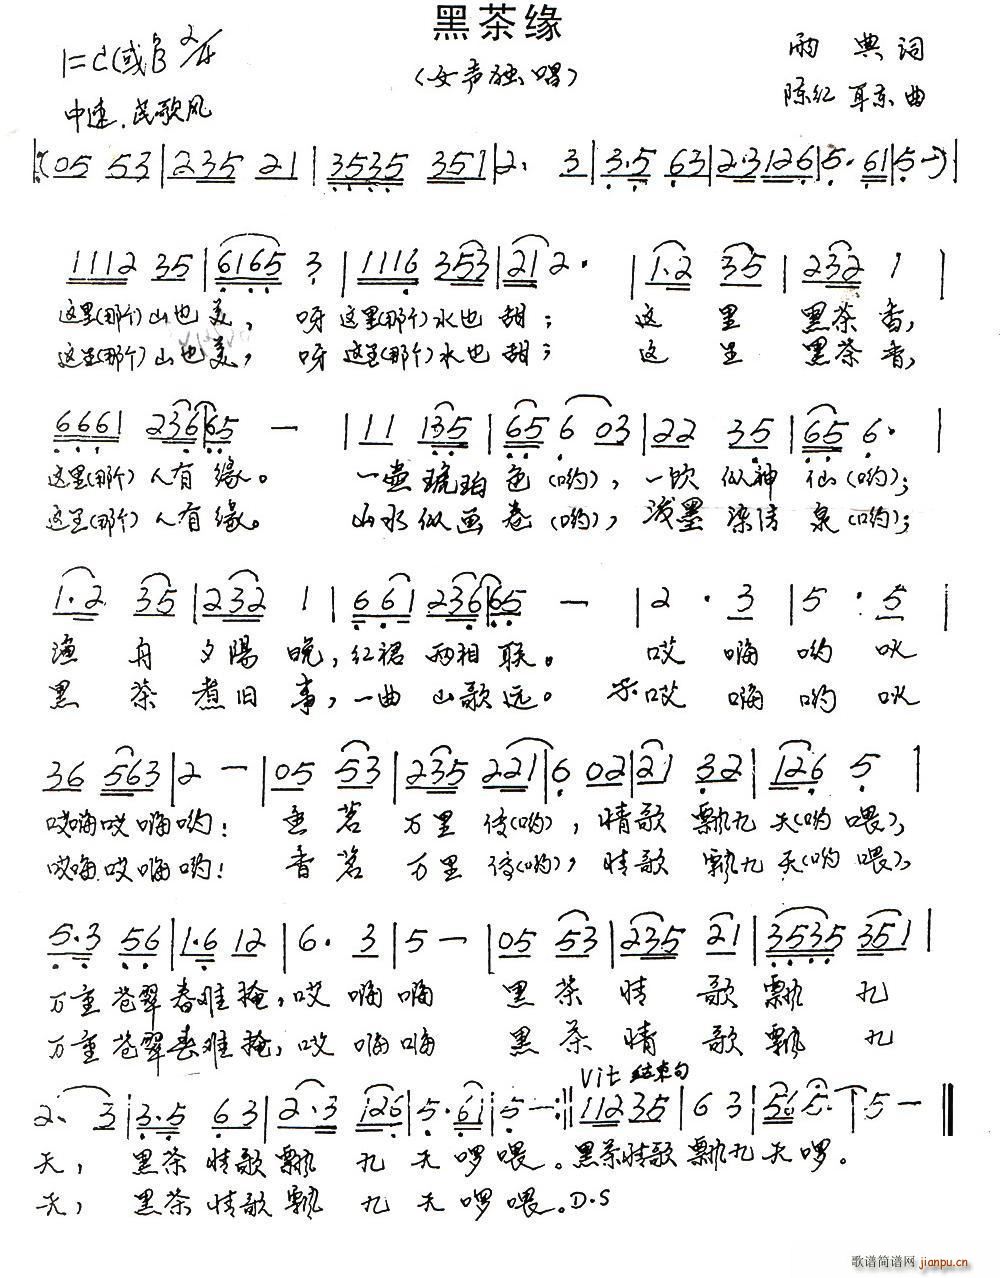 黑茶缘
1=C(或♭B 2/4
(女声独唱)
雨典词
中速.民歌风
陈红 耳东曲
(05 53|235 21|3535 351|2. 3|3.5 63|2.3126|5.61|5-)|
1112 35|6165 3|1116 353|21 2.|1.2 35|232 1|
这里(那个)山也美, 呀 这里(那个)水也甜; 这里黑茶香,
这里(那个)山也美, 呀 这里(那个)水也甜; 这里黑茶香,
6661 236|65 -|11 135|65 6 03|22 35|65 6.|
这里(那个)人有缘。 一壶琥珀色(哟), 一饮似神仙(哟);
这里(那个)人有缘。 山水似画卷(哟), 浅墨染清泉(哟);
1.2 35|232 1|661 236|65 -|2. 3|5. 5|
渔舟夕陽晚, 红裙两相联。 哎嗨哟
黑茶煮旧事, 一曲山歌远。 哎嗨哟
36 563|2 -|05 53|235 221|6 02|21 32|126 5|
哎嗨哎嗨哟! 香茗万里传(哟), 情歌飘九天(哟喂),
哎嗨哎嗨哟! 香茗万里传(哟), 情歌飘九天(哟喂),
5.3 56|1.6 12|6. 3|5 -|05 53|235 21|3535 351|
万重苍翠春难掩, 哎嗨嗨 黑茶情歌飘九
万重苍翠春难掩, 哎嗨嗨 黑茶情歌飘九
Vit 结束句
2. 3|3.5 63|2.3 126|5.61|5 -:||11235|63|565.|5 -||
天, 黑茶情歌飘九天啰喂。黑茶情歌飘九天啰。
天, 黑茶情歌飘九天啰喂。D.S
歌谱简谱网 jianpu.cn